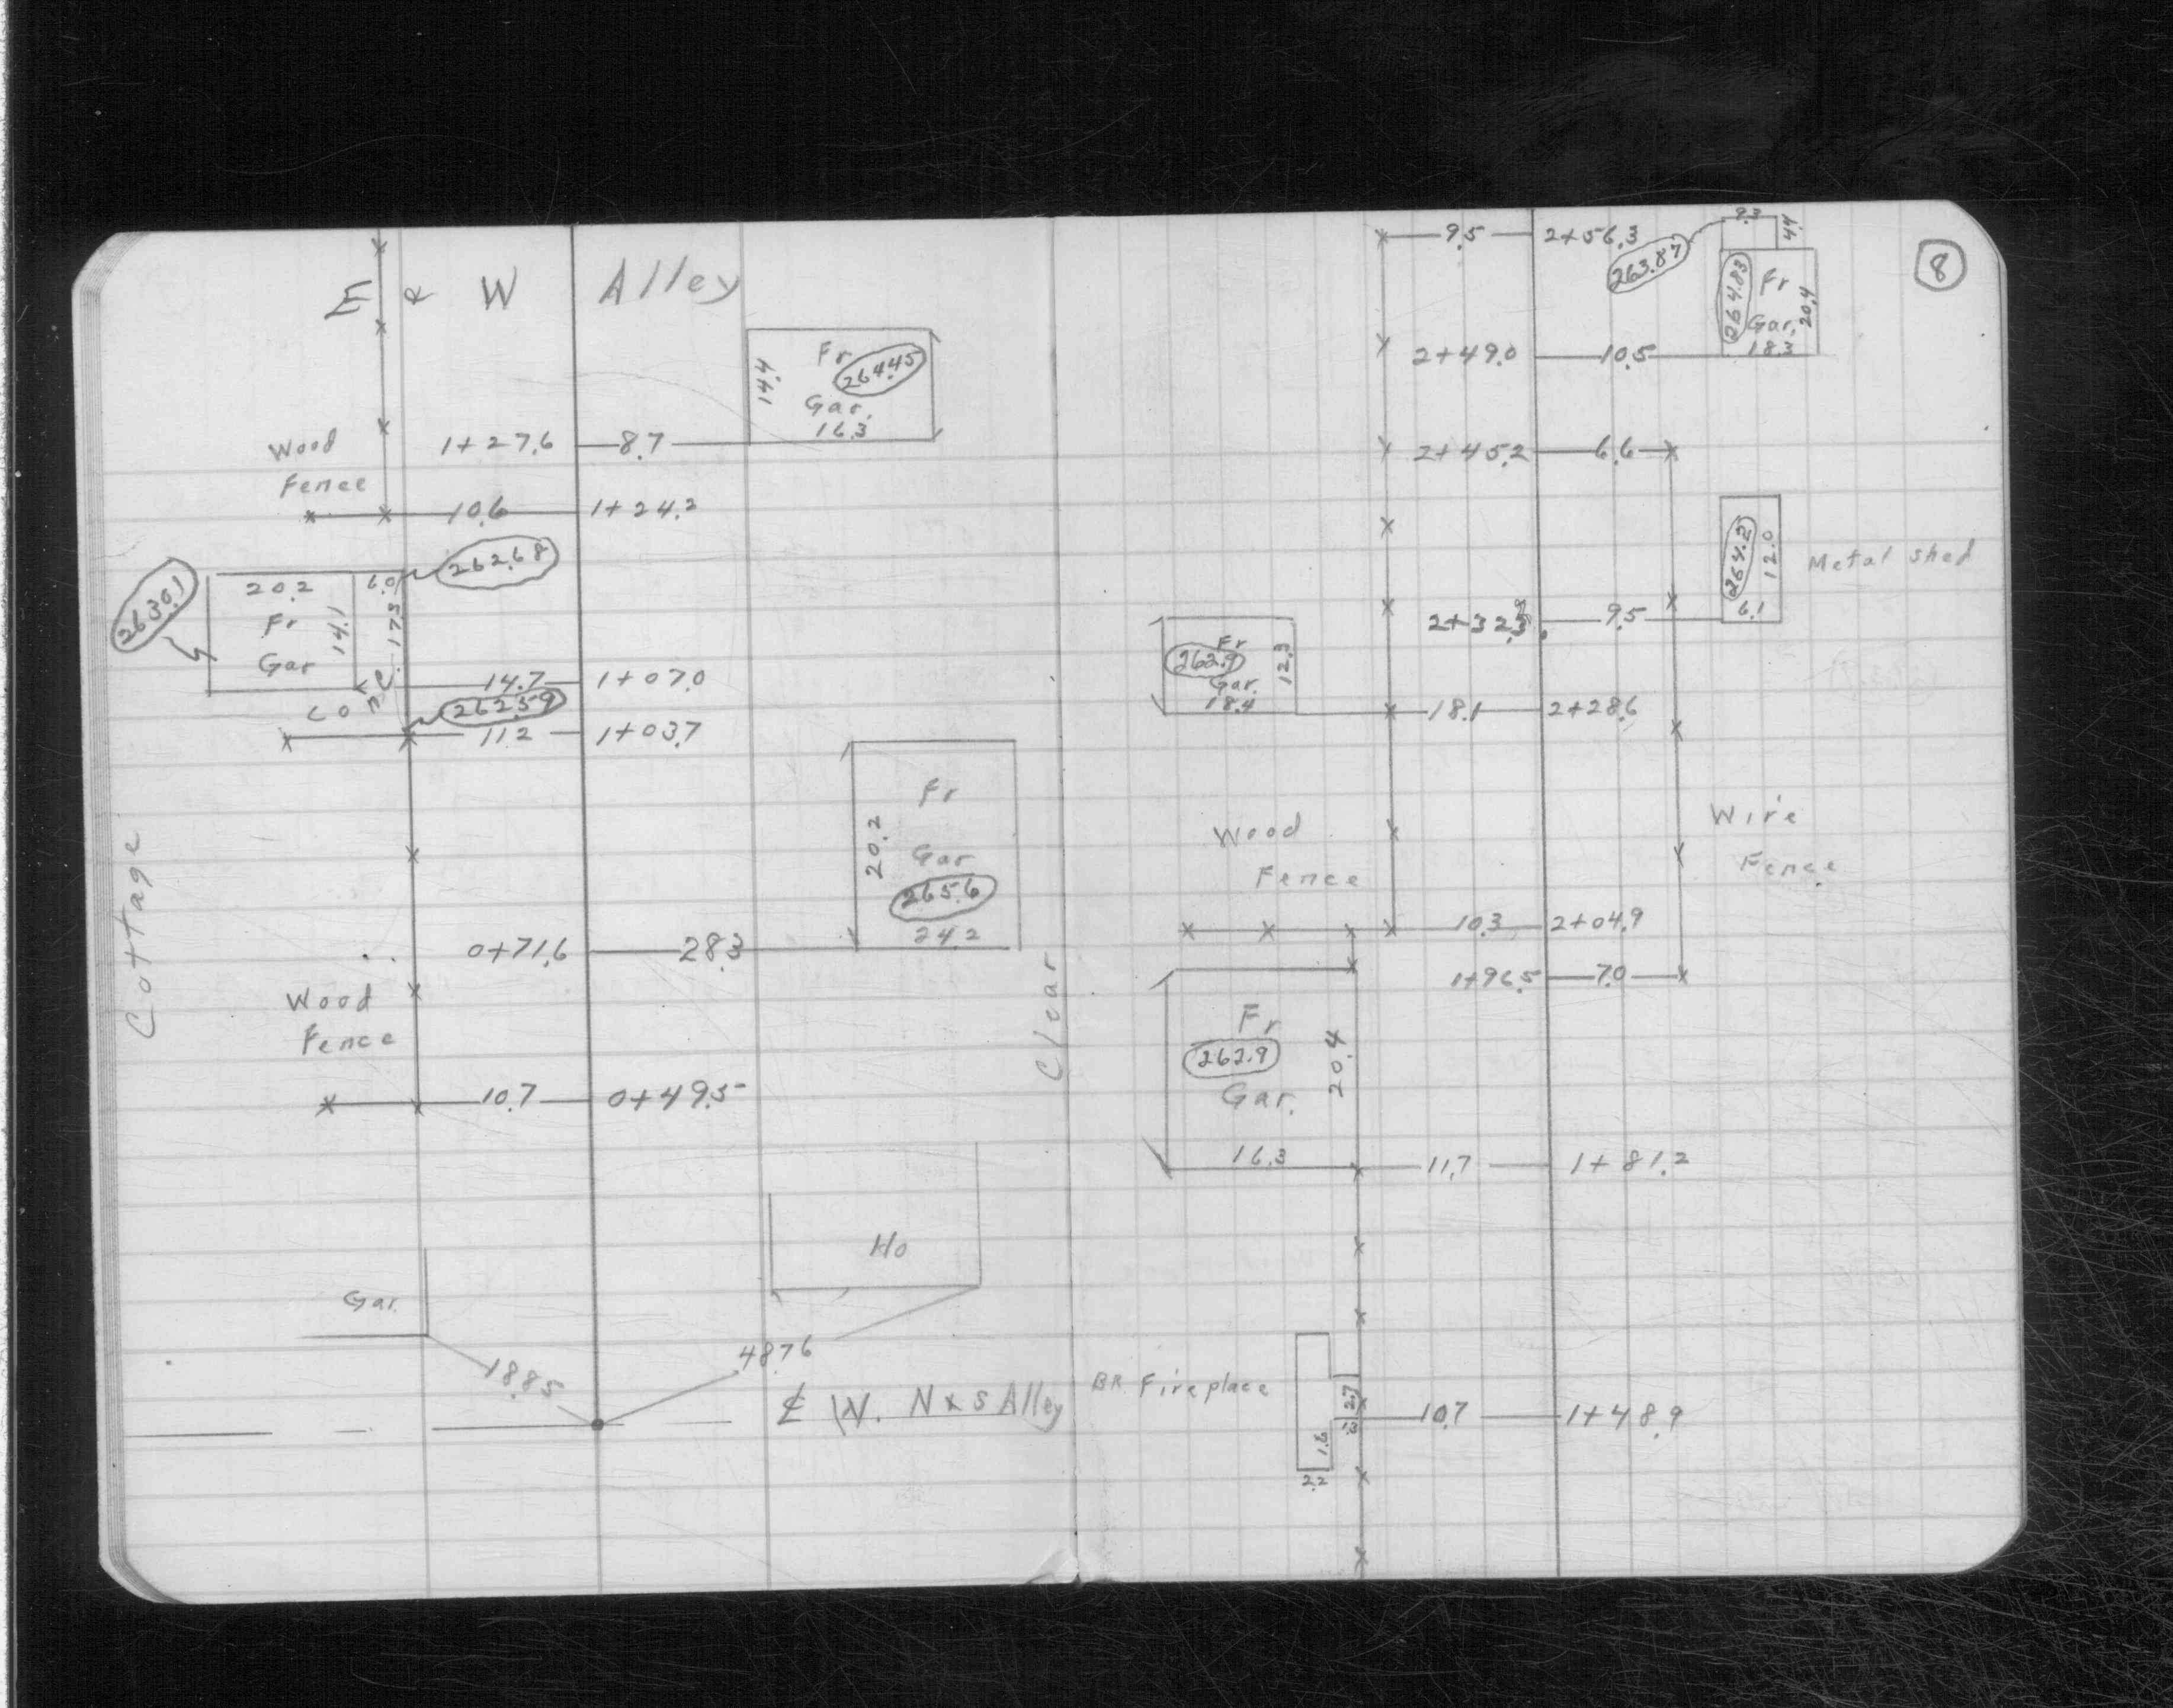 E & W Alley
Fr
264.45
14.4
Gar.
16.3
Wood
Fence
1+27.6
8.7
10.6
1+24.2
262.68
263.01
20.2
6.0
Fr
14.1
17.3
Gar
Conc.
14.7
1+07.0
262.59
11.2
1+03.7
Cottage
Fr
20.2
Gar
265.6
24.2
0+71.6
28.3
Wood
Fence
10.7
0+49.5
Ho
Gar.
18.85
48.76
℄ W. N & S Alley
Clear
8
9.5
2+56.3
9.3
4.4
263.87
264.83
Fr
Gar.
20.4
18.3
2+49.0
10.5
2+45.2
6.6
264.2
12.0
6.1
Metal Shed
9.5
Fr
262.9
Gar.
12.3
18.4
18.1
2+28.6
Wood
Fence
Wire
Fence
10.3
2+04.9
1+96.5
7.0
Fr
262.9
Gar.
20.4
16.3
11.7
1+81.2
BR Fireplace
2.7
1.6
2.2
10.7
1+48.9